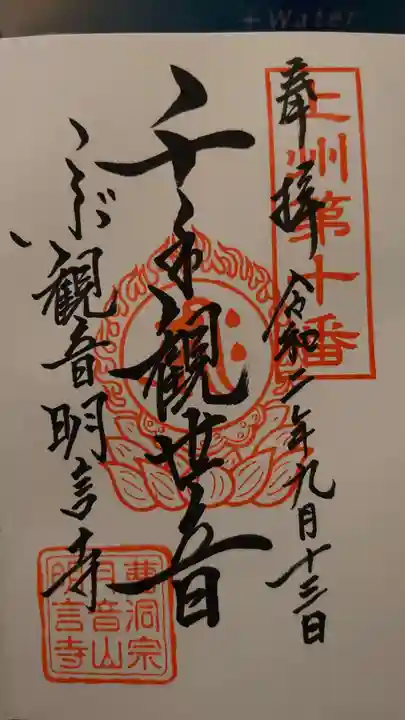 +Water
上州第十番
奉拝
令和二年九月十三日
千手観世音
こぶい観音明言寺
曹洞宗
月音山
明言寺